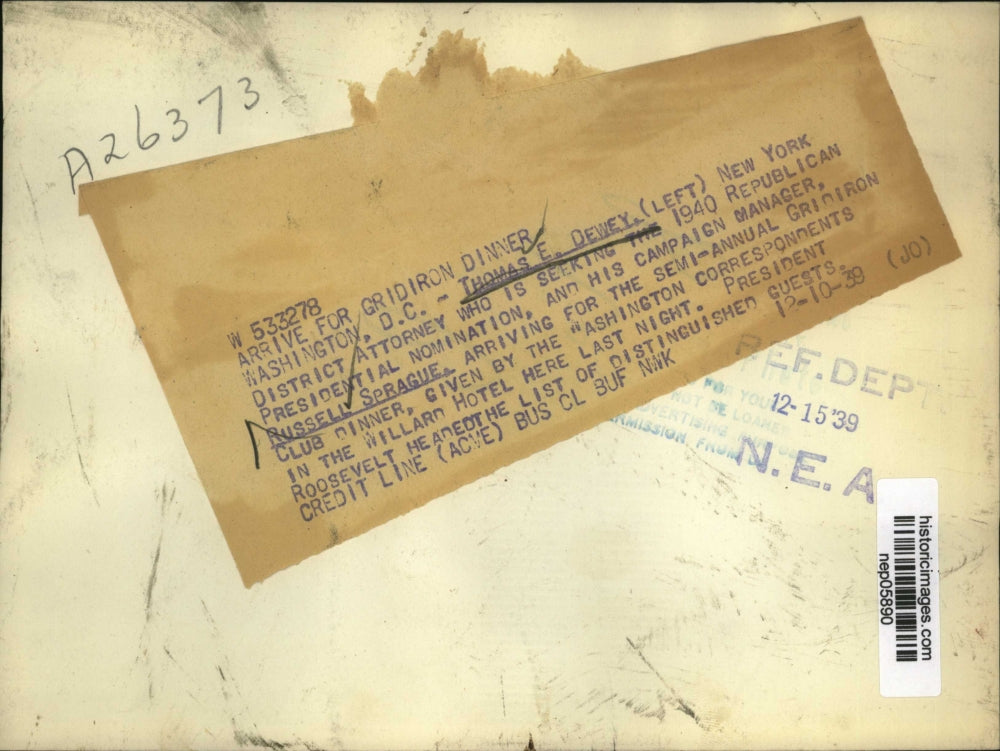 A26373
W 533278
ARRIVE FOR GRIDIRON DINNER
WASHINGTON, D.C. - THOMAS E. DEWEY, (LEFT) NEW YORK
DISTRICT ATTORNEY WHO IS SEEKING THE 1940 REPUBLICAN
PRESIDENTIAL NOMINATION, AND HIS CAMPAIGN MANAGER,
RUSSELL SPRAGUE, ARRIVING FOR THE SEMI-ANNUAL GRIDIRON
CLUB DINNER, GIVEN BY THE WASHINGTON CORRESPONDENTS
IN THE WILLARD HOTEL HERE LAST NIGHT. PRESIDENT
ROOSEVELT HEADEDTHE LIST OF DISTINGUISHED GUESTS.
CREDIT LINE (ACME) BUS CL BUF NWK 12-10-39 (JO)
REF. DEPT
FOR YOU
12-15'39
NOT BE LOANED
ADVERTISING
PERMISSION FROM
N.E.A
historicimages.com
nep05890